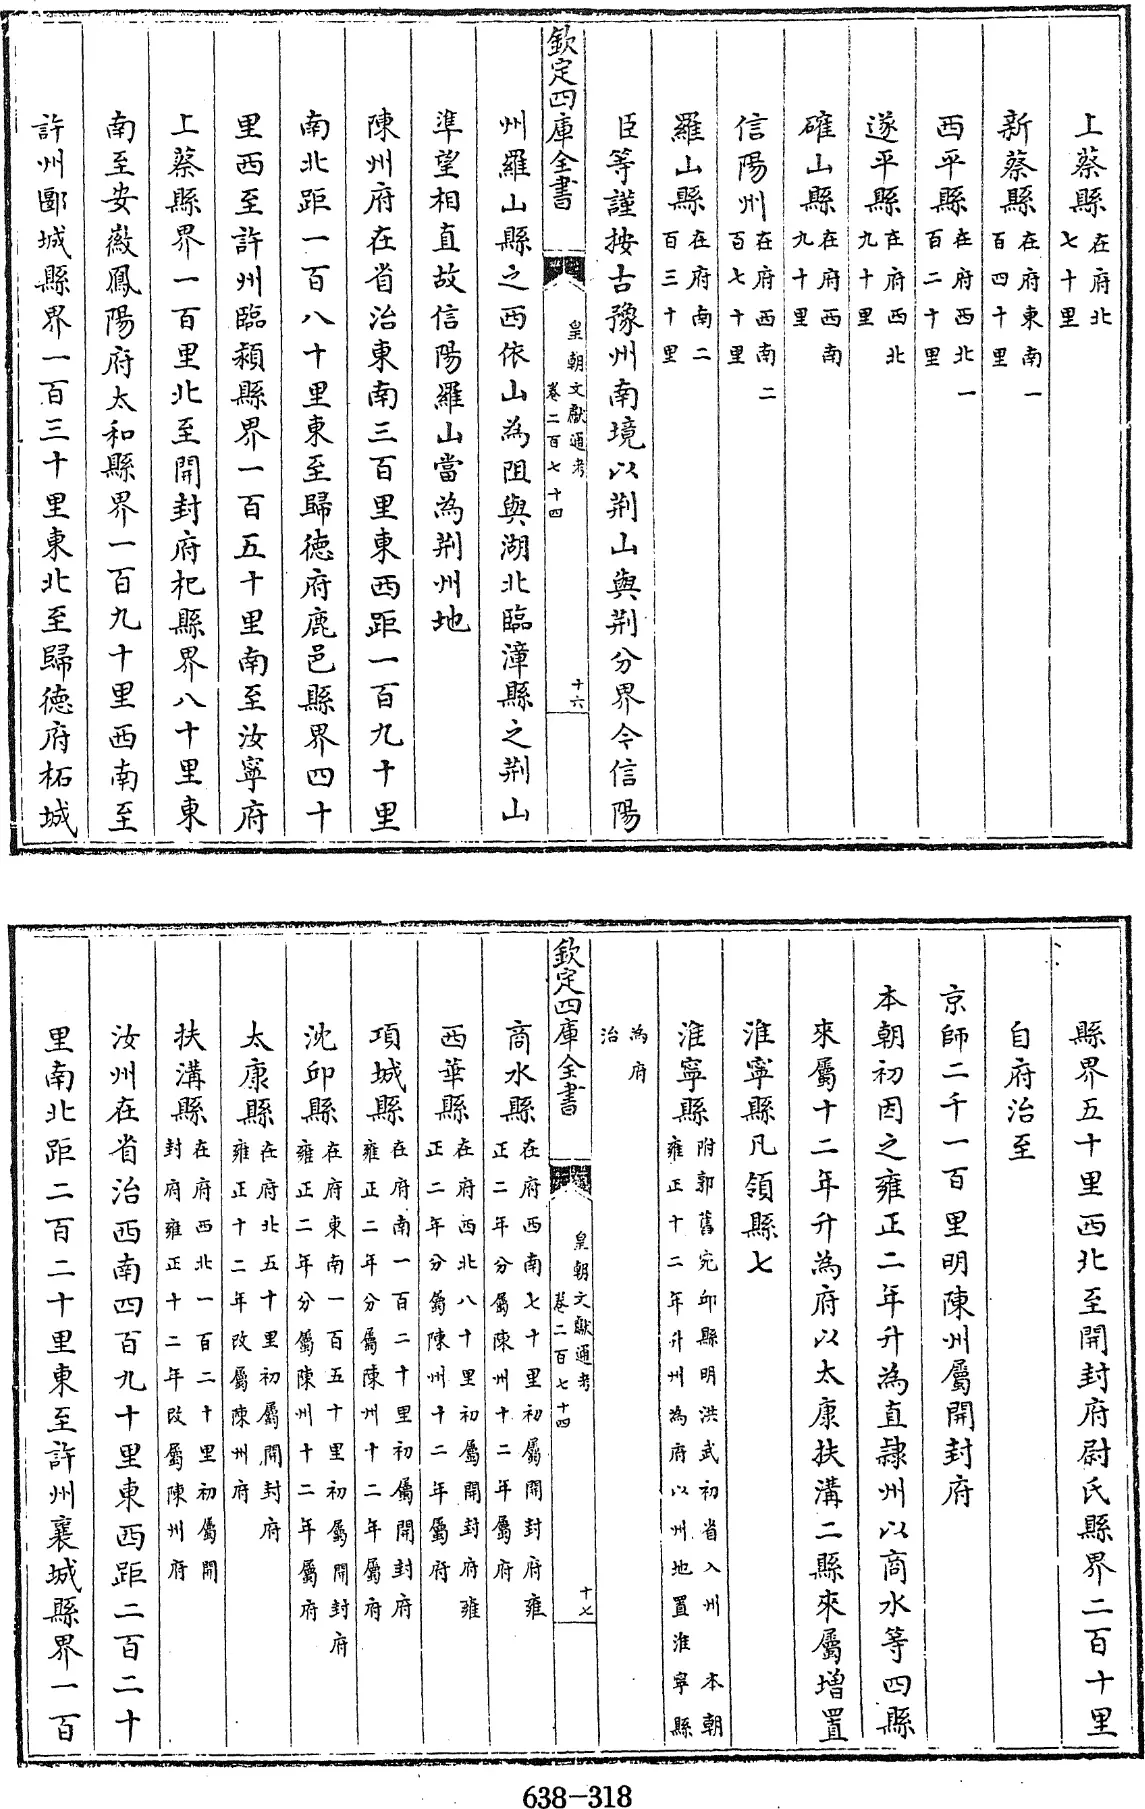 上蔡縣在府北七十里
新蔡縣在府東南一百四十里
西平縣在府西北一百二十里
遂平縣在府西北九十里
確山縣在府西南九十里
信陽州在府西南二百七十里
羅山縣在府南二百三十里
臣等謹按古豫州南境以荆山與荆分界今信陽
欽定四庫全書
皇朝文獻通考
卷二百七十四
十六
州羅山縣之西依山為阻與湖北臨漳縣之荆山
準望相直故信陽羅山當為荆州地
陳州府在省治東南三百里東西距一百九十里
南北距一百八十里東至歸德府鹿邑縣界四十
里西至許州臨潁縣界一百五十里南至汝寧府
上蔡縣界一百里北至開封府杞縣界八十里東
南至安徽鳳陽府太和縣界一百九十里西南至
許州郾城縣界一百三十里東北至歸德府柘城
縣界五十里西北至開封府尉氏縣界二百十里
自府治至
京師二千一百里明陳州屬開封府
本朝初因之雍正二年升為直隸州以商水等四縣
來屬十二年升為府以太康扶溝二縣來屬增置
淮寧縣凡領縣七
淮寧縣附郭舊宛邱縣明洪武初省入州 本朝雍正十二年升州為府以州地置淮寧縣
為府治
欽定四庫全書
皇朝文獻通考
卷二百七十四
十七
商水縣在府西南七十里初屬開封府雍正二年分屬陳州十二年屬府
西華縣在府西北八十里初屬開封府雍正二年分屬陳州十二年屬府
項城縣在府南一百二十里初屬開封府雍正二年分屬陳州十二年屬府
沈邱縣在府東南一百五十里初屬開封府雍正二年分屬陳州十二年屬府
太康縣在府北五十里初屬開封府雍正十二年改屬陳州府
扶溝縣在府西北一百二十里初屬開封府雍正十二年改屬陳州府
汝州在省治西南四百九十里東西距二百二十
里南北距二百二十里東至許州襄城縣界一百
638-318